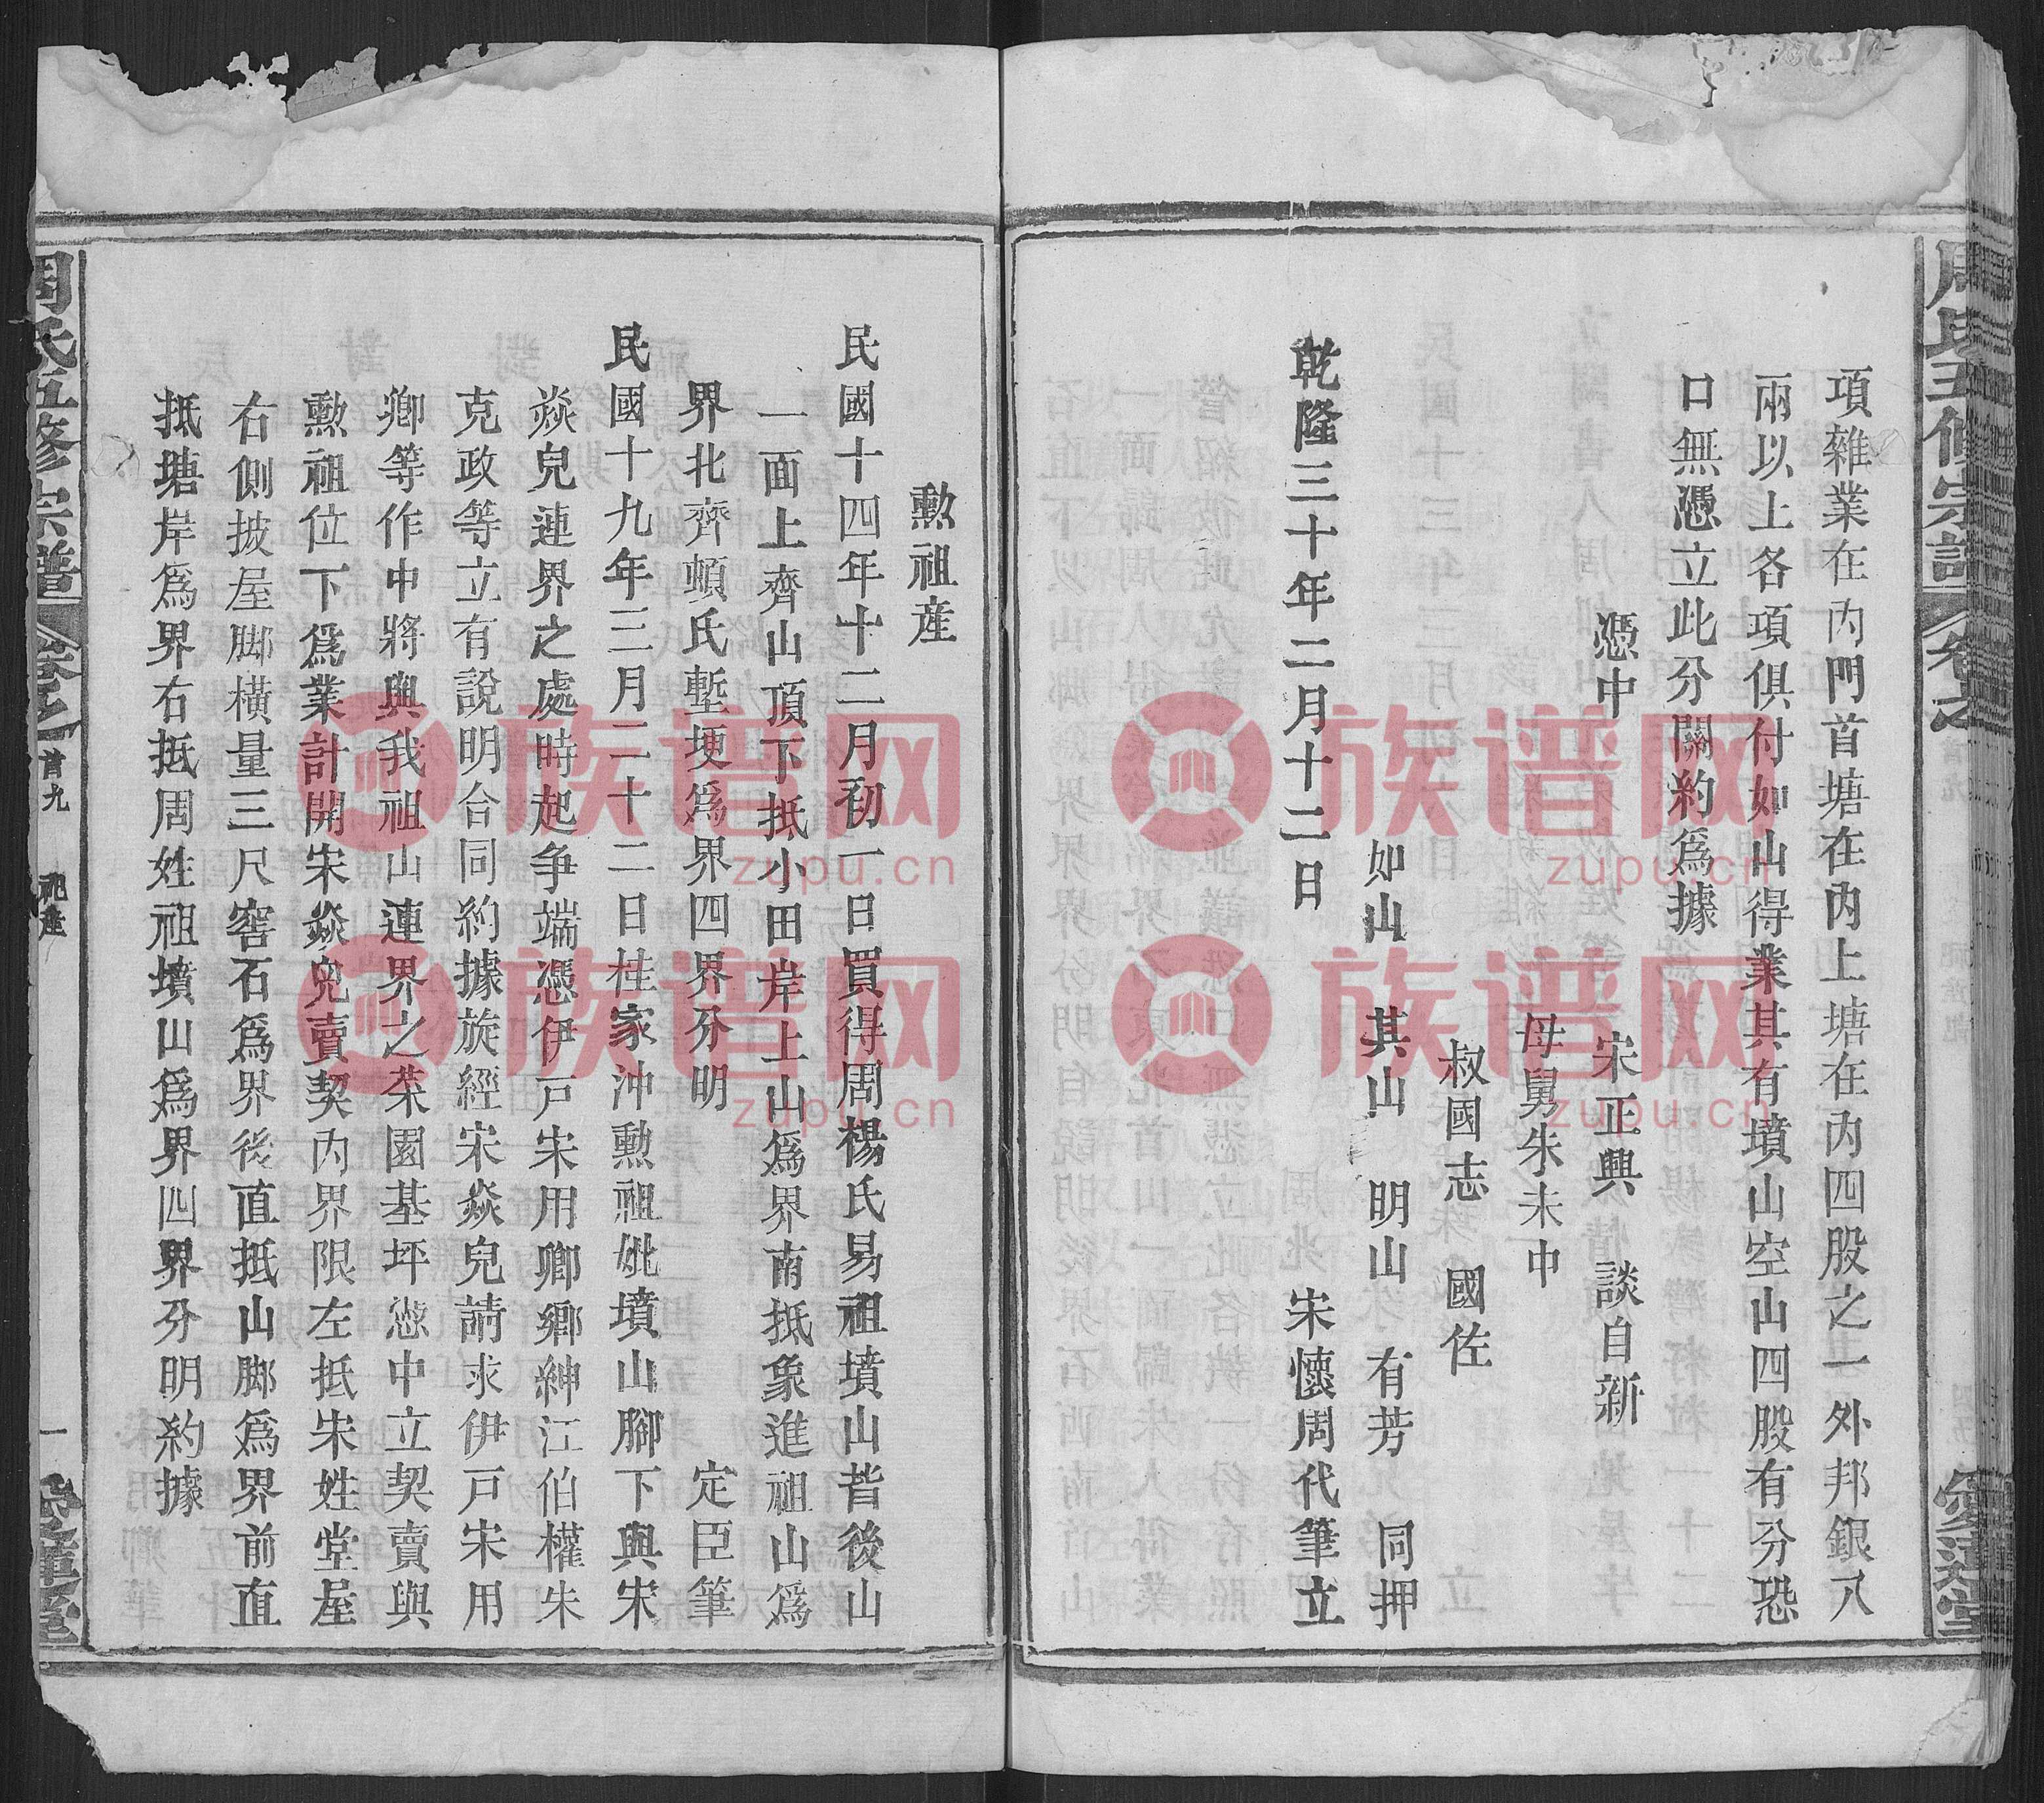 項雜業在內門首塘在內上塘在內四股之一外邦銀八
兩以上各項俱付如山得業其有墳山空山四股有分恐
口無憑立此分關約為據
憑中 宋正興 談自新
母舅朱未中
叔國志 國佐
如山 其山 明山 有芳 同押
乾隆三十年二月十二日 宋懷周代筆立
勳祖產
民國十四年十二月初一日買得周楊氏易祖墳山昔後山
一面上齊山頂下抵小田岸上山為界南抵象進祖山為
界北齊頓氏塹埂為界四界分明 定臣筆
民國十九年三月二十二日桂家沖勳祖妣墳山腳下與宋
焱兒連界之處時起爭端憑伊戶宋用卿鄉紳江伯權朱
克政等立有說明合同約據旋經宋焱兒請求伊戶宋用
卿等作中將與我祖山連界之菜園基坪憑中立契賣與
勳祖位下為業計開宋焱兒賣契內界限左抵宋姓堂屋
右側披屋脚橫量三尺窖石為界後直抵山脚為界前直
抵塘岸為界右抵周姓祖墳山為界四界分明約據
周氏五修宗譜
卷之
首九
祀產
一
愛蓮堂
族谱网
zupu.cn
族谱网
zupu.cn
族谱网
zupu.cn
族谱网
zupu.cn